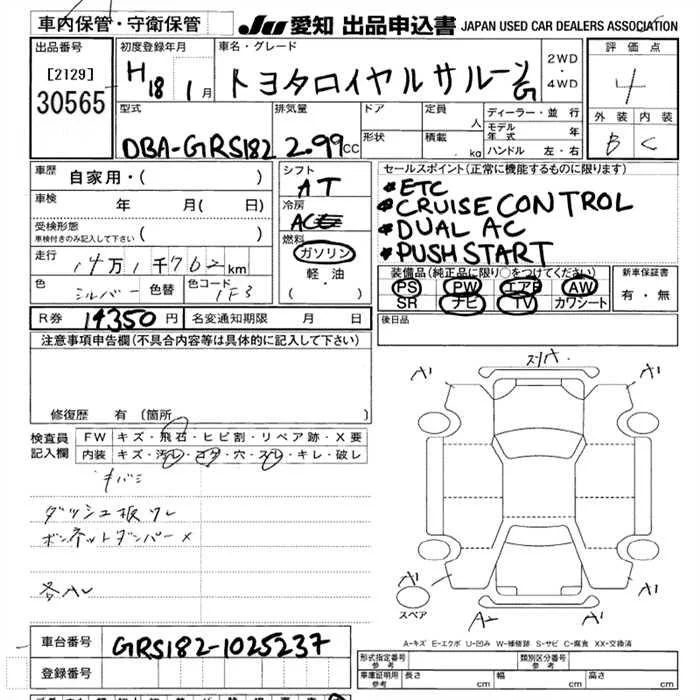 車内保管・守衛保管
JU 愛知 出品申込書 JAPAN USED CAR DEALERS ASSOCIATION
出品番号
[2129]
30565
初度登録年月
H18 1月
車名・グレード
トヨタロイヤルサルーンG
2WD
・
4WD
評価点
4
外装 内装
B C
型式
DBA-GRS182
排気量
2.99cc
ドア
形状
定員 人
積載 kg
ディーラー・並行
モデル年式 年
ハンドル 左・右
車歴 自家用・( )
車検 年 月( 日)
受検形態
車検付きのみ記入して下さい ( )
走行 14万1千762km
色 シルバー 色替 色コード 1F3
シフト
AT
冷房
AC
燃料
ガソリン
軽・油
( ・ )
セールスポイント(正常に機能するものに限ります)
ETC
CRUISE CONTROL
DUAL AC
PUSH START
装備品(純正品に限り○をつけてください)
PS PW エアB AW
SR ナビ TV カワシート
新車保証書
有・無
R券 14350円 名変通知期限 月 日
後日品
注意事項申告欄(不具合内容等は具体的に記入して下さい)
修復歴 有(箇所 )
検査員記入欄
FW キズ・飛石・ヒビ割・リペア跡・X要
内装 キズ・汚レ・コゲ・穴・スレ・キレ・破レ
ダッシュ板ワレ
ボンネットダンパー×
各AレA1 スリA. A1
A1 A1
A1 A1
A2 A1
スペア
A-キズ E-エクボ U-凹み W-補修跡 S-サビ C-腐食 XX-交換済
車台番号 GRS182-1025237
登録番号
形式指定番号 参考
類別区分番号 参考
車庫証明用 参考 長さ cm 幅 cm 高さ cm